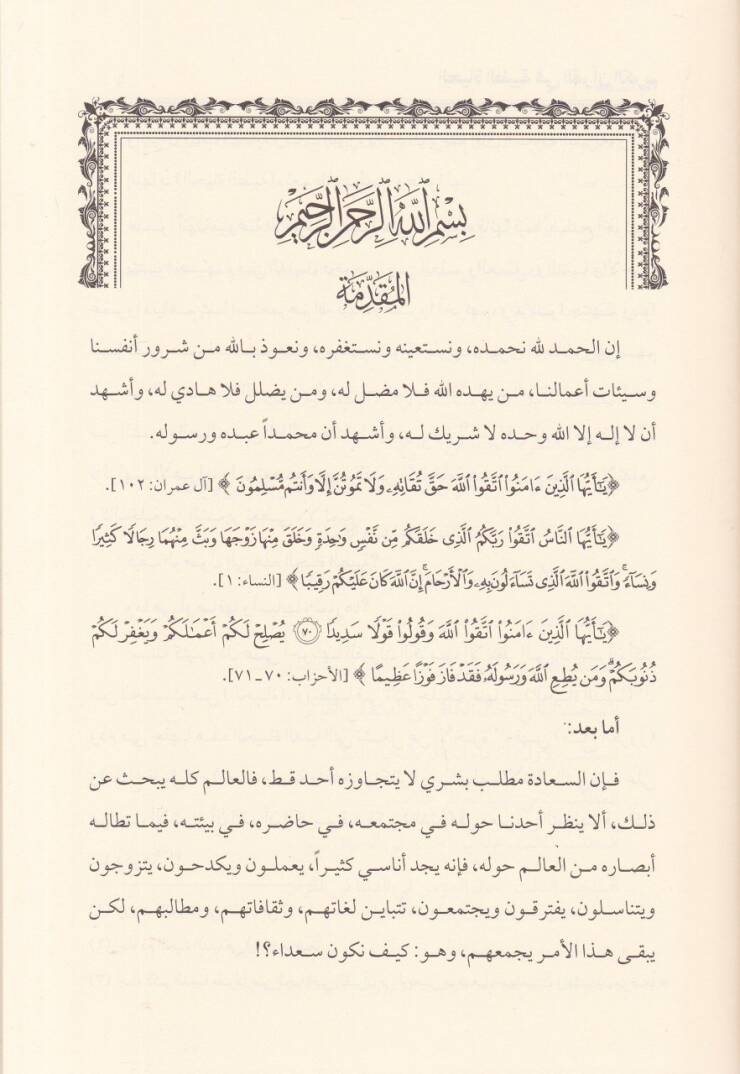 بِسْمِ ٱللَّهِ ٱلرَّحْمَٰنِ ٱلرَّحِيمِ
المُقَدِّمَة
إن الحمـد لله نحمـده، ونستعينه ونستغفره، ونعوذ بـالله مـن شـرور أنفسـنا
وسـيئات أعمالنـا، مـن يهـده الله فـلا مضـل له، ومـن يضلل فلا هـادي لـه، وأشـهد
أن لا إلـه إلا الله وحـده لا شـريك لـه، وأشـهد أن محمـداً عبـده ورسـوله.
﴿يَٰٓأَيُّهَا ٱلَّذِينَ ءَامَنُوا۟ ٱتَّقُوا۟ ٱللَّهَ حَقَّ تُقَاتِهِۦ وَلَا تَمُوتُنَّ إِلَّا وَأَنتُم مُّسْلِمُونَ﴾ [آل عمران: ١٠٢].
﴿يَٰٓأَيُّهَا ٱلنَّاسُ ٱتَّقُوا۟ رَبَّكُمُ ٱلَّذِى خَلَقَكُم مِّن نَّفْسٍ وَٰحِدَةٍ وَخَلَقَ مِنْهَا زَوْجَهَا وَبَثَّ مِنْهُمَا رِجَالًا كَثِيرًا
وَنِسَآءً ۚ وَٱتَّقُوا۟ ٱللَّهَ ٱلَّذِى تَسَآءَلُونَ بِهِۦ وَٱلْأَرْحَامَ ۚ إِنَّ ٱللَّهَ كَانَ عَلَيْكُمْ رَقِيبًا﴾ [النساء: ١].
﴿يَٰٓأَيُّهَا ٱلَّذِينَ ءَامَنُوا۟ ٱتَّقُوا۟ ٱللَّهَ وَقُولُوا۟ قَوْلًا سَدِيدًا ٧٠ يُصْلِحْ لَكُمْ أَعْمَٰلَكُمْ وَيَغْفِرْ لَكُمْ
ذُنُوبَكُمْ ۗ وَمَن يُطِعِ ٱللَّهَ وَرَسُولَهُۥ فَقَدْ فَازَ فَوْزًا عَظِيمًا﴾ [الأحزاب: ٧٠ـ٧١].
أما بعد:
فـإن السعادة مطلب بشري لا يتجاوزه أحد قط، فالعالم كله يبحث عن
ذلـك، ألا ينظـر أحدنـا حولـه فـي مجتمعـه، فـي حاضـره، فـي بيئتـه، فيمـا تطالـه
أبصاره من العالم حوله، فإنه يجد أناسي كثيراً، يعملون ويكدحون، يتزوجون
ويتناسـلون، يفترقـون ويجتمعـون، تتبايـن لغاتهـم، وثقافاتهـم، ومطالبهـم، لكـن
يبقـى هـذا الأمـر يجمعهـم، وهـو: كيـف نكـون سـعداء؟!